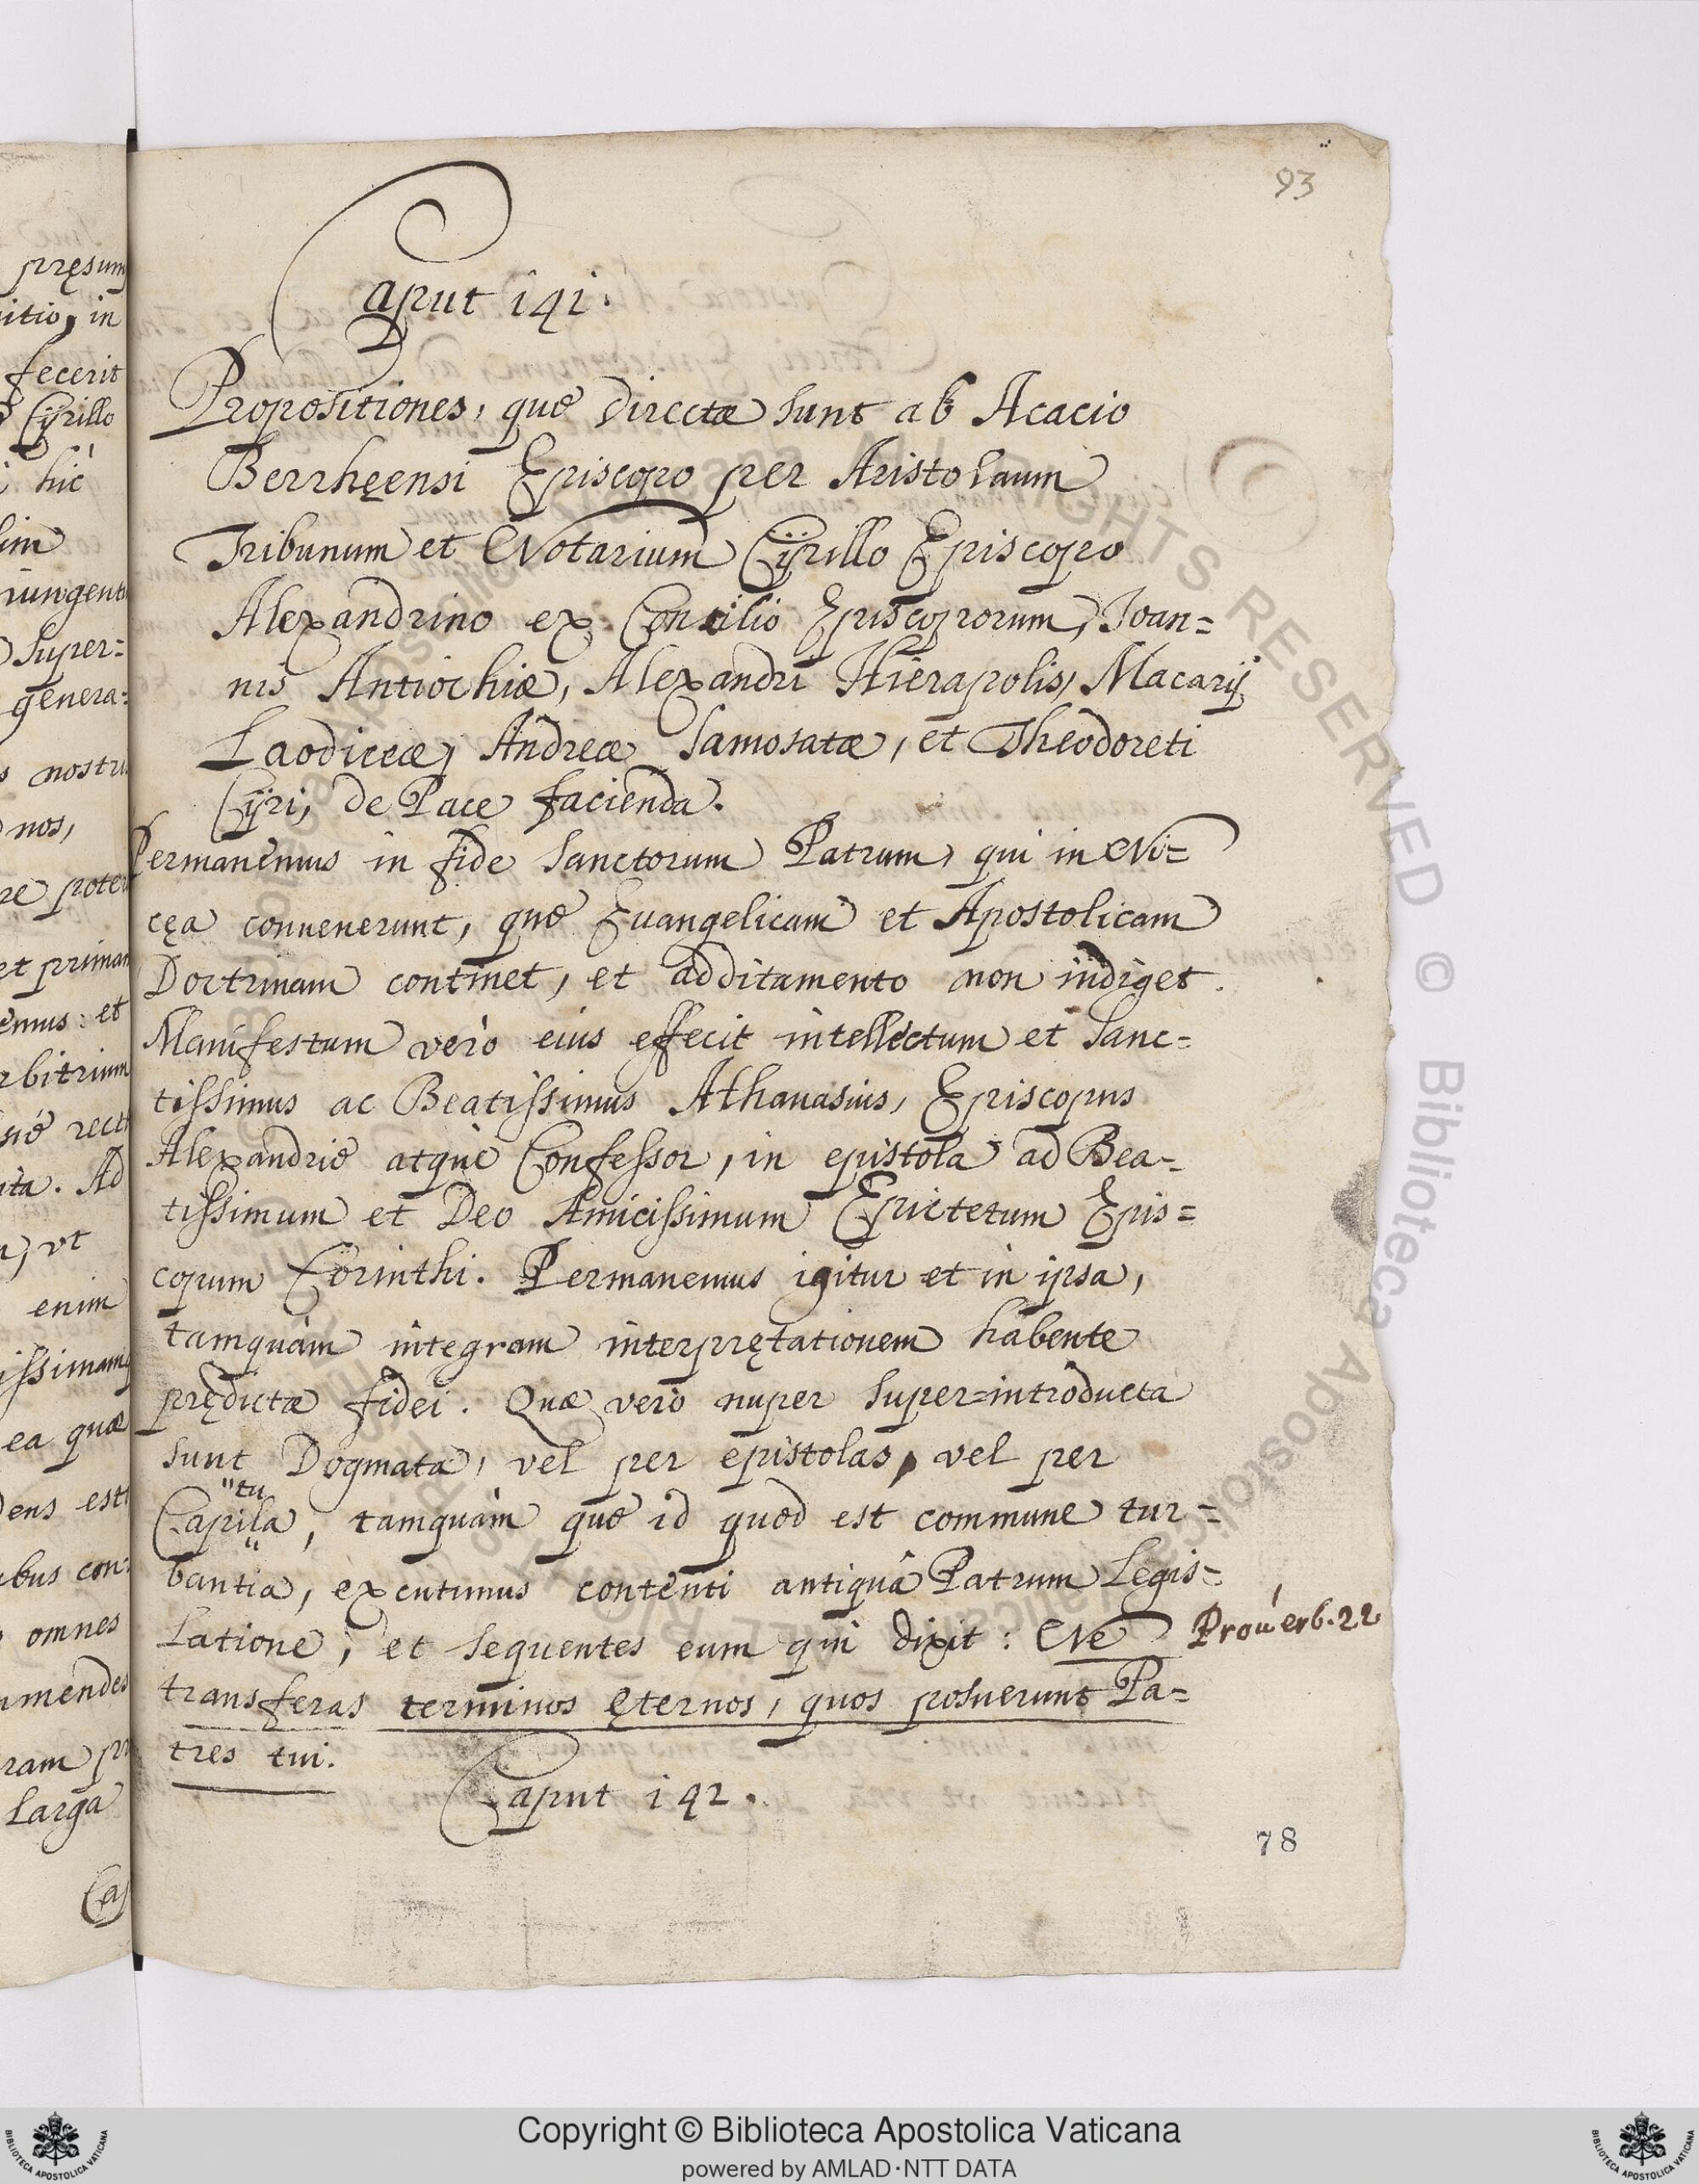 93
Caput 141.
Propositiones, quę directæ sunt ab Acacio
Berrhęensi Episcopo per Aristolaum
Tribunum et Notarium Cÿrillo Episcopo
Alexandrino ex Consilio Episcoporum, Ioan=
nis Antiochiæ, Alexandri Hierapolis, Macarij
Laodiceæ, Andreæ Samosatæ, et Theodoreti
Cÿri, de Pace facienda.
Permanemus in fide Sanctorum Patrum, qui in Ni=
cęa conuenerunt, quę Euangelicam et Apostolicam
Doctrinam continet, et additamento non indiget.
Manifestum verò eius effecit intellectum et Sanc=
tissimus ac Beatissimus Athanasius, Episcopus
Alexandrię atquè Confessor, in epistola ad Bea=
tissimum et Deo Amicissimum Epictetum Epis=
copum Corinthi. Permanemus igitur et in ipsa,
tamquàm integram interprętationem habente
prędictæ fidei. Quæ verò nuper super=introducta
sunt Dogmata, vel per epistolas, vel per
"tu
Capila, tamquàm quę id quod est commune tur=
bantia, excutimus contenti antiquâ Patrum Legis=
Latione, et sequentes eum qui dixit: Ne
Prouerb. 22
transferas terminos ęternos, quos posuerunt Pa=
tres tui.
Caput 142.
78
pręsum
itio, in
fecerit
Cÿrillo
hic
iungent
super=
genera=
nostr
nos,
re pote
et priman
emus: et
rbitrium
rect
ita. Ad
vt
enim
issimam
ea quæ
dens est
bus con=
omnes
mendes
ram
Larga
Ca
© Biblioteca Apostolica Vaticana
ALL RIGHTS RESERVED
Copyright © Biblioteca Apostolica Vaticana
powered by AMLAD·NTT DATA
BIBLIOTECA APOSTOLICA VATICANA
BIBLIOTECA APOSTOLICA VATICANA